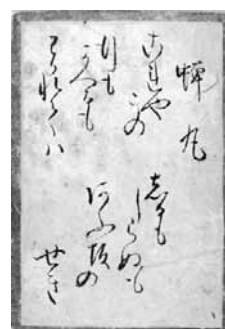 蝉丸
これやこの
行も
かへるも
わかれてハ
志るも
しらぬも
あふ坂の
せき